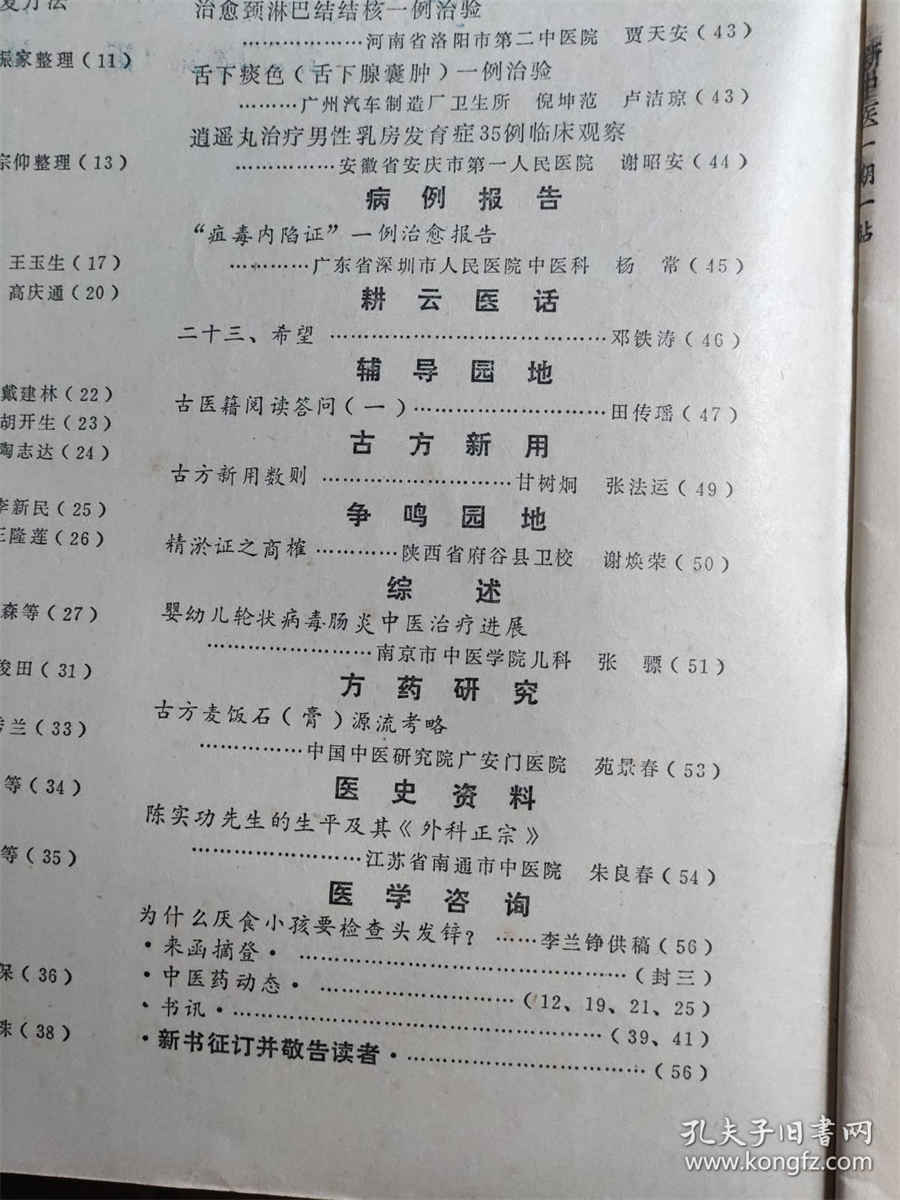 复方法
振家整理(11)
宗仰整理(13)
王玉生(17)
高庆通(20)
戴建林(22)
胡开生(23)
陶志达(24)
李新民(25)
王隆莲(26)
森等(27)
俊田(31)
兰(33)
等(34)
等(35)
保(36)
珠(38)
治愈颈淋巴结结核一例治验
…………………河南省洛阳市第二中医院 贾天安(43)
舌下痰色(舌下腺囊肿)一例治验
………广州汽车制造厂卫生所 倪坤范 卢洁琼(43)
逍遥丸治疗男性乳房发育症35例临床观察
…………安徽省安庆市第一人民医院 谢昭安(44)
病例报告
“疽毒内陷证”一例治愈报告
…………广东省深圳市人民医院中医科 杨 常(45)
耕云医话
二十三、希望 …………………………………邓铁涛(46)
辅导园地
古医籍阅读答问(一)………………………田传瑶(47)
古方新用
古方新用数则 ………………………甘树炯 张法运(49)
争鸣园地
精淤证之商榷 …………陕西省府谷县卫校 谢焕荣(50)
综述
婴幼儿轮状病毒肠炎中医治疗进展
……………………南京市中医学院儿科 张 骠(51)
方药研究
古方麦饭石(膏)源流考略
……………中国中医研究院广安门医院 苑景春(53)
医史资料
陈实功先生的生平及其《外科正宗》
……………………江苏省南通市中医院 朱良春(54)
医学咨询
为什么厌食小孩要检查头发锌? ……李兰铮供稿(56)
·来函摘登· ……………………………………………(封三)
·中医药动态· ………………………(12、19、21、25)
·书讯·…………………………………………………(39、41)
·新书征订并敬告读者·………………………………(56)
新中医一期一
孔夫子旧书网
www.kongfz.com